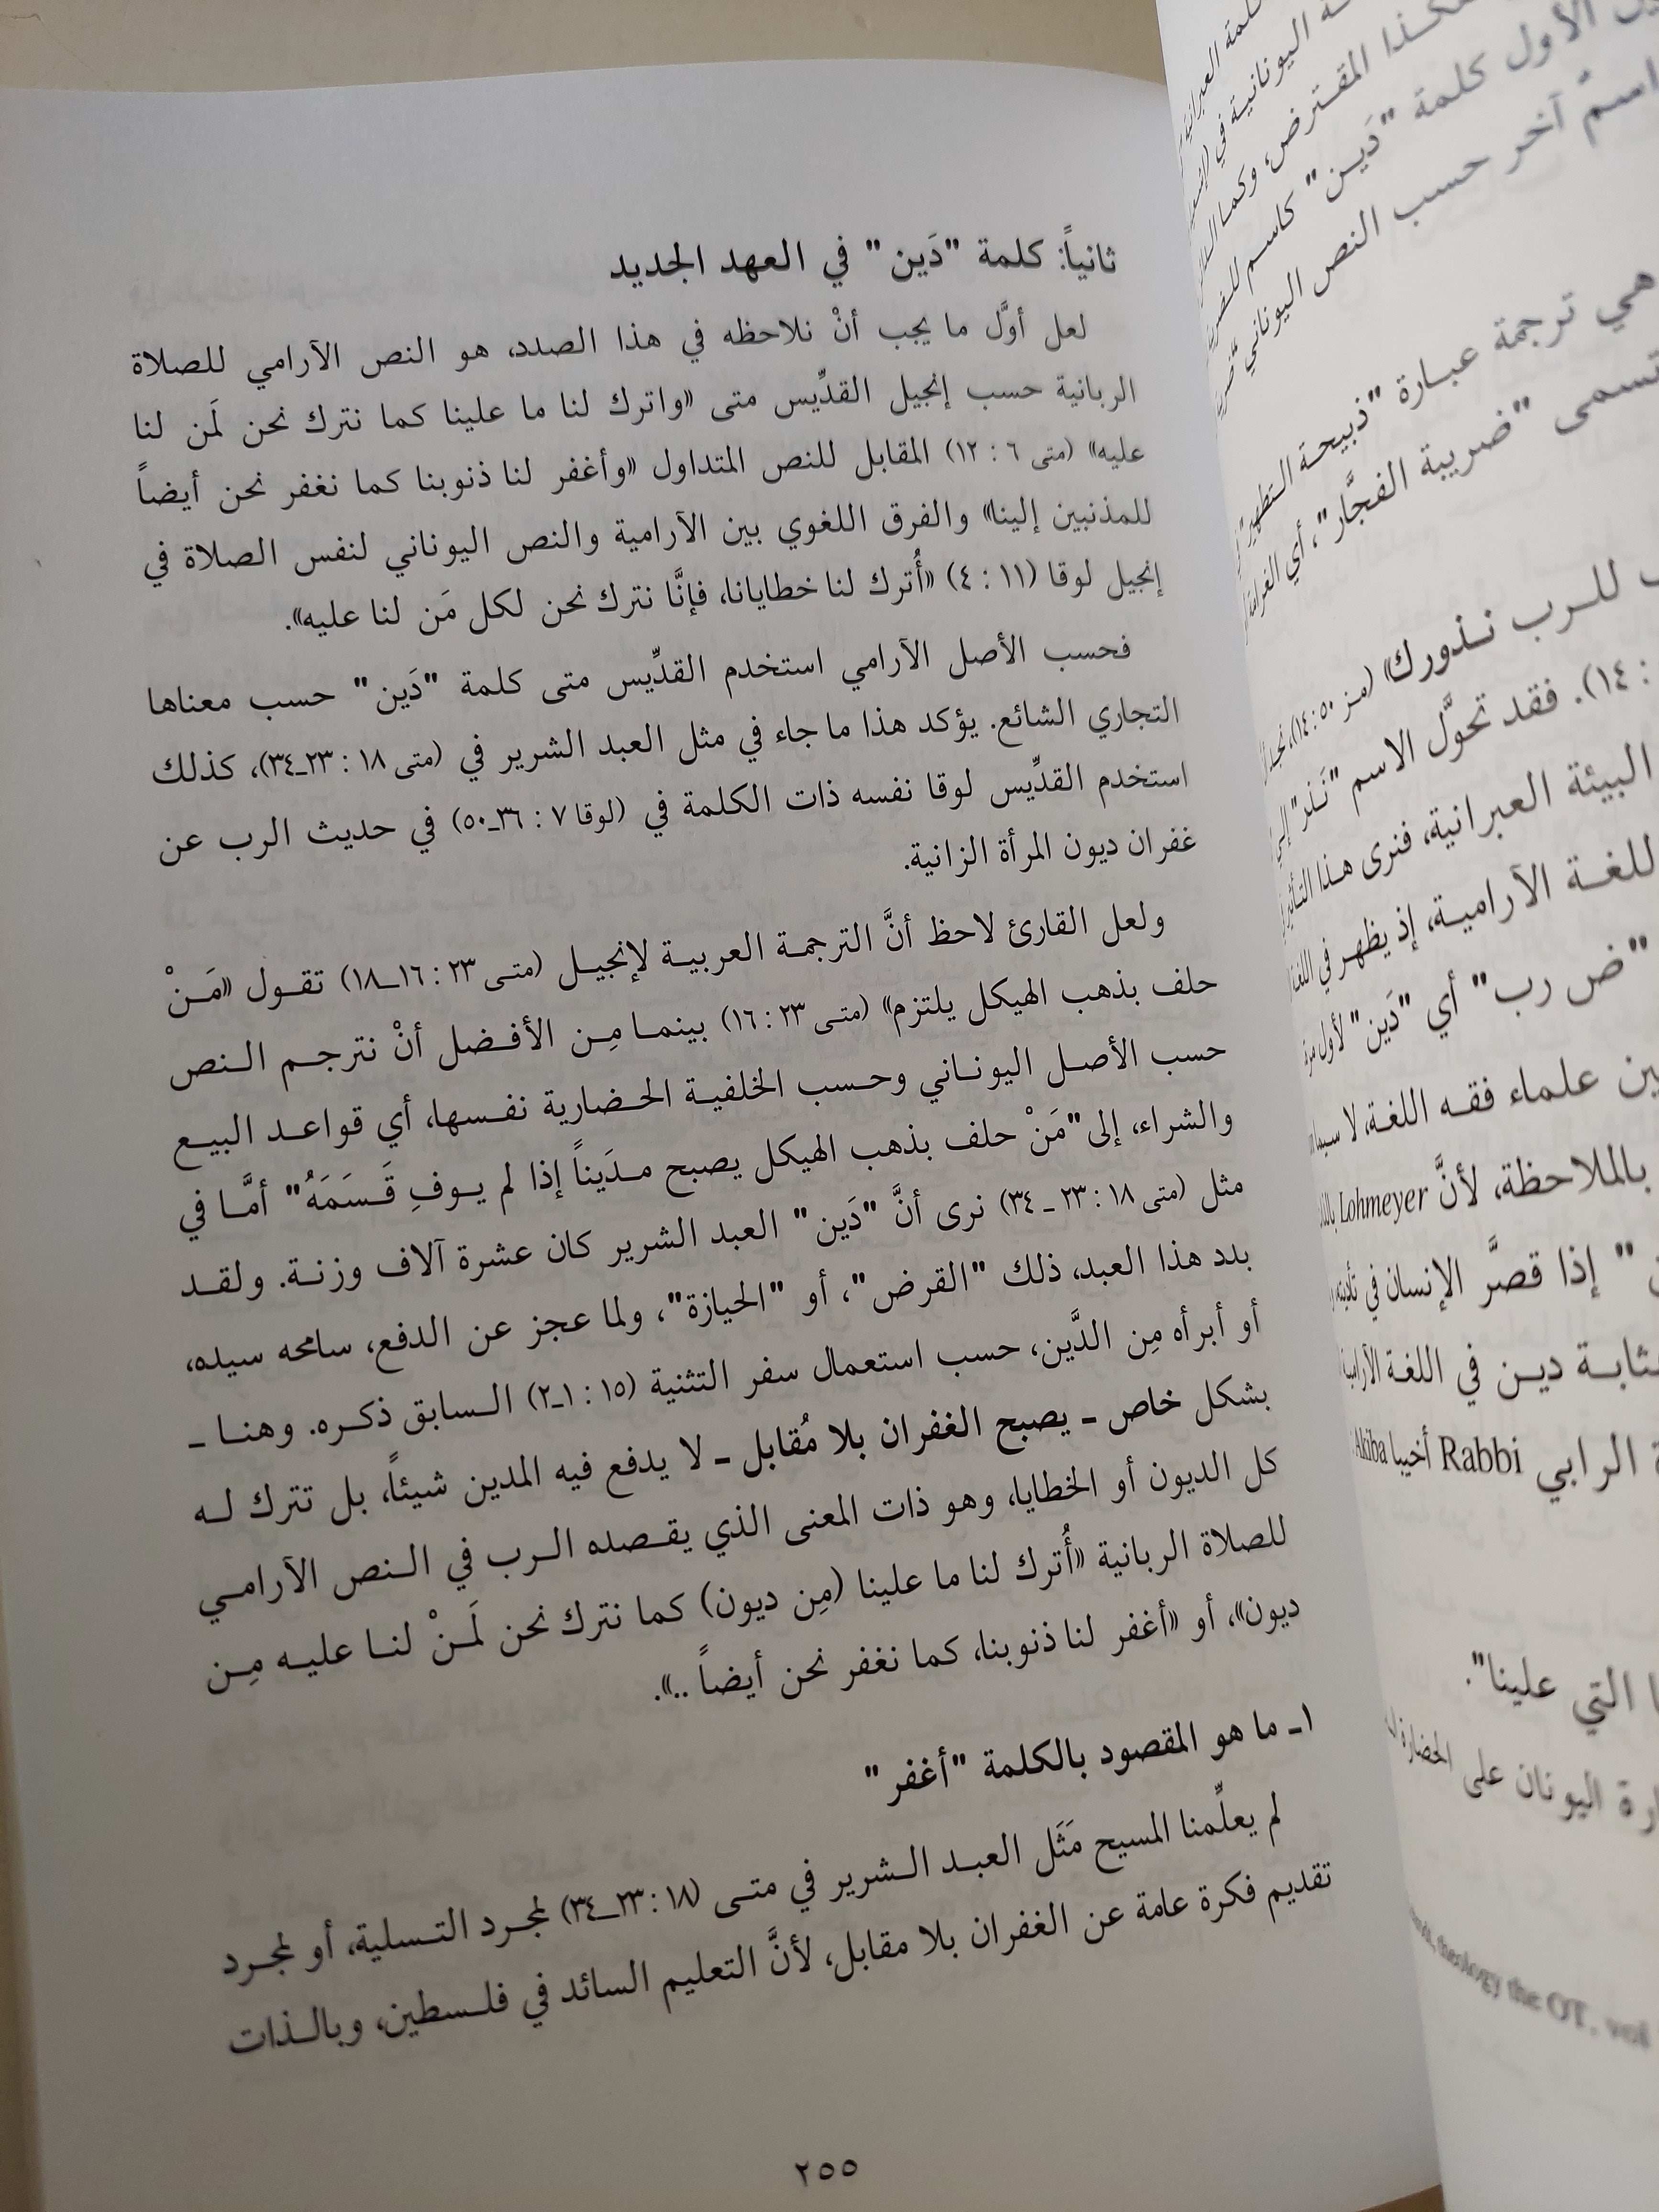 ثانياً: كلمة "دَين" في العهد الجديد
لعل أوَّل ما يجب أنْ نلاحظه في هذا الصدد، هو النص الآرامي للصلاة
الربانية حسب إنجيل القدِّيس متى «واترك لنا ما علينا كما نترك نحن لَمن لنا
عليه» (متى ٦ : ١٢) المقابل للنص المتداول «وأغفر لنا ذنوبنا كما نغفر نحن أيضاً
للمذنبين إلينا» والفرق اللغوي بين الآرامية والنص اليوناني لنفس الصلاة في
إنجيل لوقا (١١ : ٤) «أُترك لنا خطايانا، فإنَّا نترك نحن لكل مَن لنا عليه».
فحسب الأصل الآرامي استخدم القدِّيس متى كلمة "دَين" حسب معناها
التجاري الشائع. يؤكد هذا ما جاء في مثل العبد الشرير في (متى ١٨ : ٢٣ـ٣٤)، كذلك
استخدم القدِّيس لوقا نفسه ذات الكلمة في (لوقا ٧ : ٣٦ـ٥٠) في حديث الرب عن
غفران ديون المرأة الزانية.
ولعل القارئ لاحظ أنَّ الترجمة العربية لإنجيل (متى ٢٣ : ١٦ـ١٨) تقول «مَنْ
حلف بذهب الهيكل يلتزم» (متى ٢٣ : ١٦) بينما مِن الأفضل أنْ نترجم النص
حسب الأصل اليوناني وحسب الخلفية الحضارية نفسها، أي قواعد البيع
والشراء، إلى "مَنْ حلف بذهب الهيكل يصبح مدَيناً إذا لم يوفِ قَسَمَهُ" أمَّا في
مثل (متى ١٨ : ٢٣ ـ ٣٤) نرى أنَّ "دَين" العبد الشرير كان عشرة آلاف وزنة. ولقد
بدد هذا العبد، ذلك "القرض"، أو "الحيازة"، ولما عجز عن الدفع، سامحه سيده،
أو أبرأه مِن الدَّين، حسب استعمال سفر التثنية (١٥ : ١ـ٢) السابق ذكره. وهنا ـ
بشكل خاص ـ يصبح الغفران بلا مُقابل ـ لا يدفع فيه المدين شيئاً، بل تترك له
كل الديون أو الخطايا، وهو ذات المعنى الذي يقصده الرب في النص الآرامي
للصلاة الربانية «أُترك لنا ما علينا (مِن ديون) كما نترك نحن لَمنْ لنا عليه مِن
ديون»، أو «أغفر لنا ذنوبنا، كما نغفر نحن أيضاً ..».
١ـ ما هو المقصود بالكلمة "أغفر"
لم يعلِّمنا المسيح مَثَل العبد الشرير في متى (١٨ : ٢٣ـ٣٤) لمجرد التسلية، أو لمجرد
تقديم فكرة عامة عن الغفران بلا مقابل، لأنَّ التعليم السائد في فلسطين، وبالذات
٢٥٥
كلمة العبرانية
اليونانية في
هكذا المقترض، وكما
الأول كلمة "دَين" كاسم
اسمٌ آخر حسب النص اليوناني
هي ترجمة عبارة "ذبيحة التطهير"
تسمى "ضريبة الفجَّار"، أي الغرامة
للرب نذورك» (مز ٥٠ : ١٤)، نجد
: ١٤). فقد تحوَّل الاسم "نَذر" إلى
البيئة العبرانية، فنرى هذا التأثير
للغة الآرامية، إذ يظهر في اللغة
"ض رب" أي "دَين" لأول مرة
ين علماء فقه اللغة، لا سيما
بالملاحظة، لأنَّ Lohmeyer
" إذا قصَّر الإنسان في تأديته
بثابة دين في اللغة الآرامية
الرابي Rabbi أخيبا Akiba
التي علينا".
ارة اليونان على الحضارة
theology the OT, vol